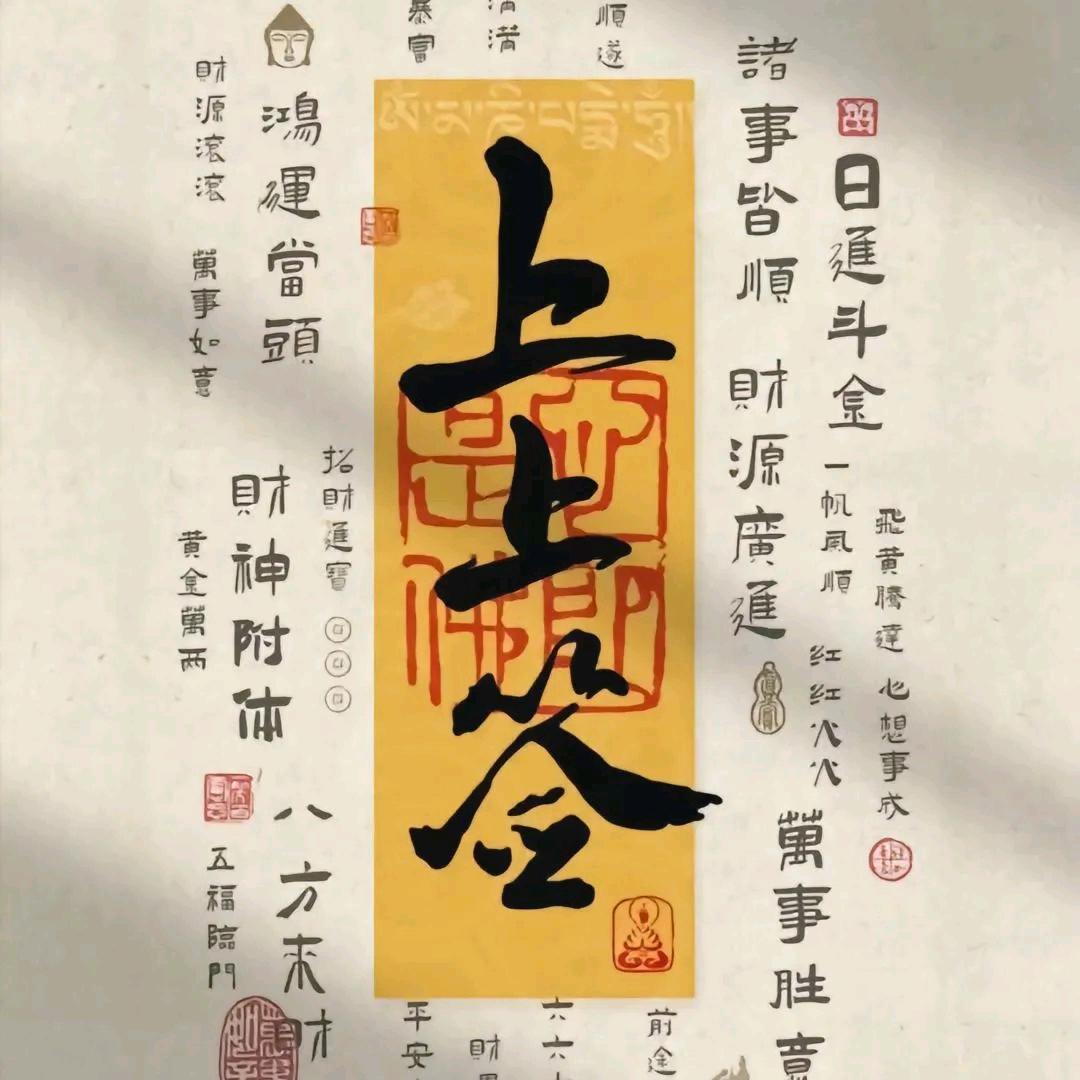 上上签
ༀ་མ་ཎི་པདྨེ་ཧཱུྃ
心即是佛
暴富
满满
順遂
諸事皆順
財源廣進
日進斗金
一帆風順
飛黄騰達
心想事成
红红火火
萬事胜意
鴻運當頭
財源滾滾
萬事如意
招財進寶
財神附体
黄金萬两
八方来財
五福臨門
平安
財
六六
前途